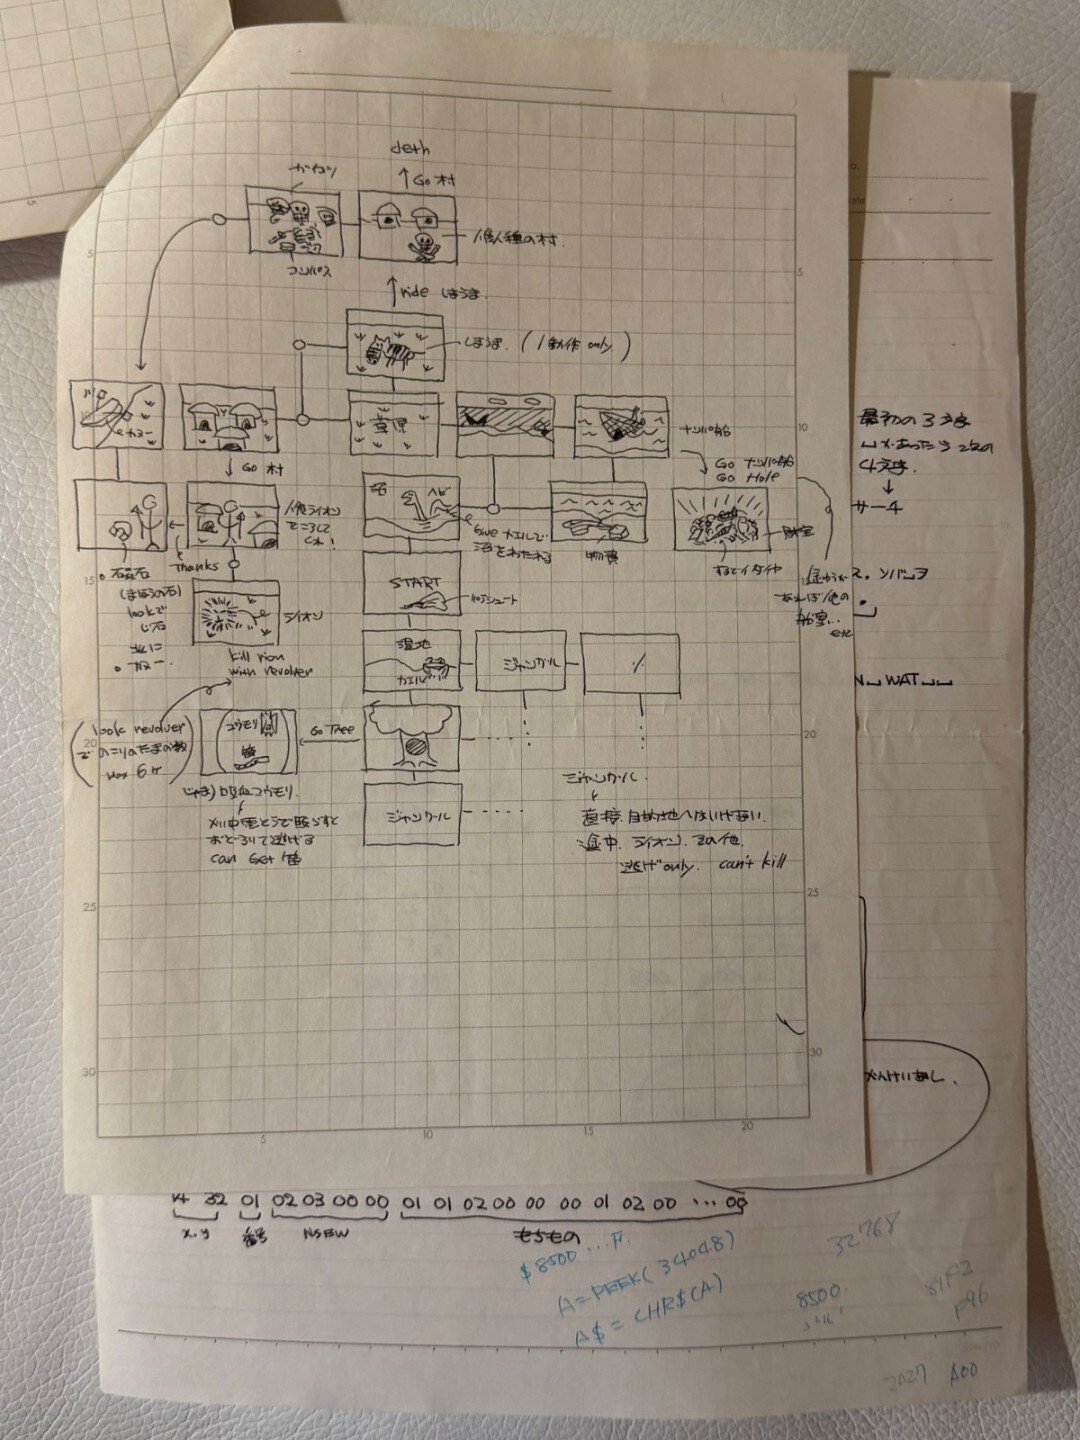 deth
↑ Go 村
ガイコツ
人食人種の村.
コンパス
↑ ride しまうま
しまうま. (1動作 only.)
カヌー
草原
ナンパ船
Go ナンパ船
Go Hole
↓ Go 村
人食ライオン
をころして
くれ!
沼
ヘビ
Give カエルで
沼をわたれる
物資
財宝
すべてイタダヤ
Thanks
START
パラシュート
ライオン
kill rion
with revolver
look で
北に
カヌー.
湿地
カエル
ジャングル
look revolver
でのこりのたまの数
Max 6ヶ
コウモリ
Go Tree
じゃま) 吸血コウモリ.
おどろいて逃げる
can Get 笛
ジャングル
ジャングル.
直接、目的地へはいけない.
途中、ライオン、その他.
逃げ only. can't kill
最初の3文字
4文字.
↓
サーチ
etc
N␣ WAT␣␣
かんけいなし.
5
10
15
20
25
30
5
10
15
20
5
10
15
20
25
30
32 01 02 03 00 00 01 01 02 00 00 00 01 02 00 ... 00
x.y 番号 NSEW もちもの
$8500 ...
A=PEEK(34048)
A$=CHR$(A)
32768
8500
81F2
F96
A00